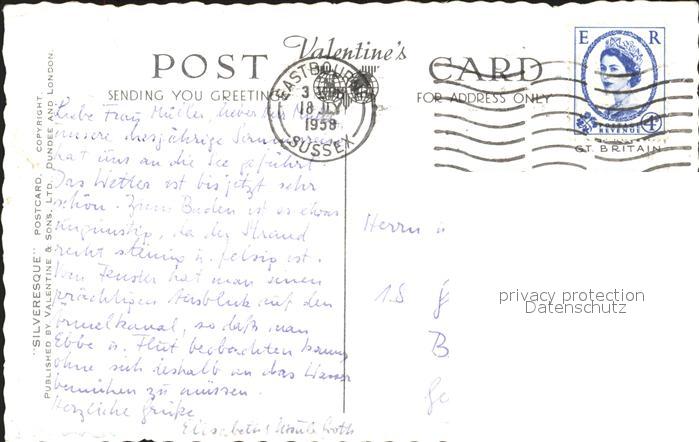 POST Valentine's CARD
SENDING YOU GREETINGS
FOR ADDRESS ONLY
E R
POSTAGE REVENUE 4D
GT. BRITAIN
EASTBOURNE
3
18
1958
SUSSEX
"SILVERESQUE" POSTCARD. COPYRIGHT.
PUBLISHED BY VALENTINE & SONS, LTD. DUNDEE AND LONDON.
Liebe Frau Müller, lieber Herr Müller
unsere diesjährige Sommerreise
hat uns an die See geführt.
Das Wetter ist bis jetzt sehr
schön. Zum Baden ist es etwas
ungünstig, da der Strand
recht steinig u. felsig ist.
Vom Fenster hat man einen
prächtigen Ausblick auf den
Ärmelkanal, so daß man
Ebbe u. Flut beobachten kann,
ohne sich deshalb an das Wasser
bemühen zu müssen.
Herzliche Grüße
Elisabeth
Herrn u
B
privacy protection
Datenschutz